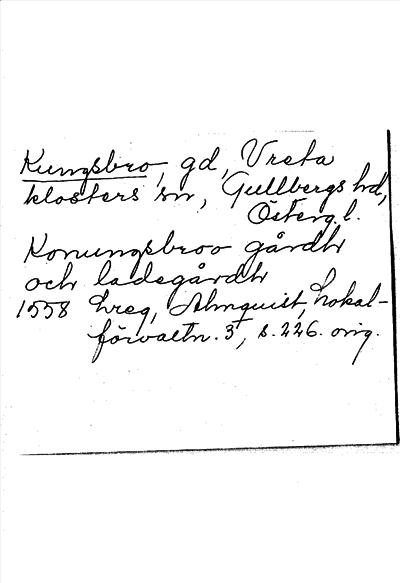 Kungsbro, gd, Vreta
klosters sn, Gullbergs hd,
Österg. l.
Konungsbroo gårdh
och ladegårdh
1558 hreg, Almquist, Lokal-
förvaltn. 3, s. 226. orig.